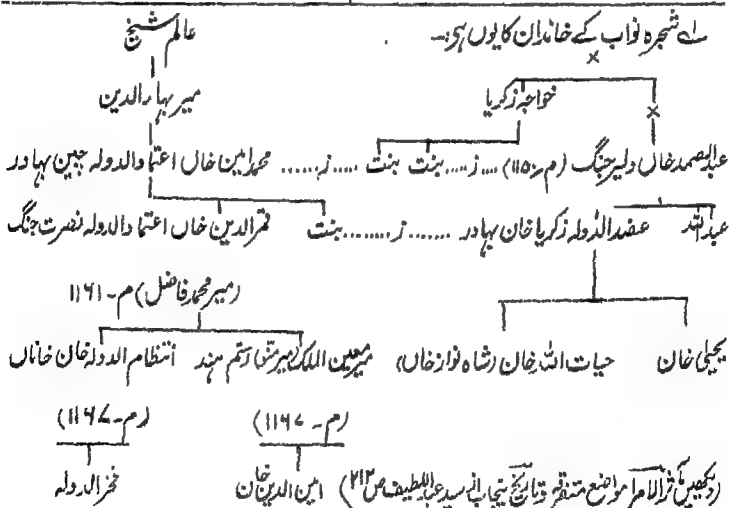 لے شجرہ نواب کے خاندان کا یوں ہی:۔ عالم شیخ
x
خواجہ زکریا میر بہار الدین
x
عبدالصمد خاں دلیر جنگ (م ۱۱۵۰) .... ز .... بنت بنت ..... ز ...... محمد امین خاں اعتماد الدولہ چین بہادر
عبد اللہ عضد الدولہ زکریا خان بہادر ....... ز ........ بنت قمر الدین خاں اعتماد الدولہ نصرت جنگ
(میر محمد فاضل) م۔ ۱۱۶۱
یحییٰ خان حیات اللہ خان (شاہ نواز خاں) میر معین الملک (میر منو) رستم ہند انتظام الدولہ خان خاناں
(م۔ ۱۱۶۷) (م۔ ۱۱۶۷)
(دیکھیں مآثر الامرا مواضع متفرقہ و تاریخ پنجاب از سید عبد اللطیف ص ۲۱۳) امین الدین خان فخر الدولہ